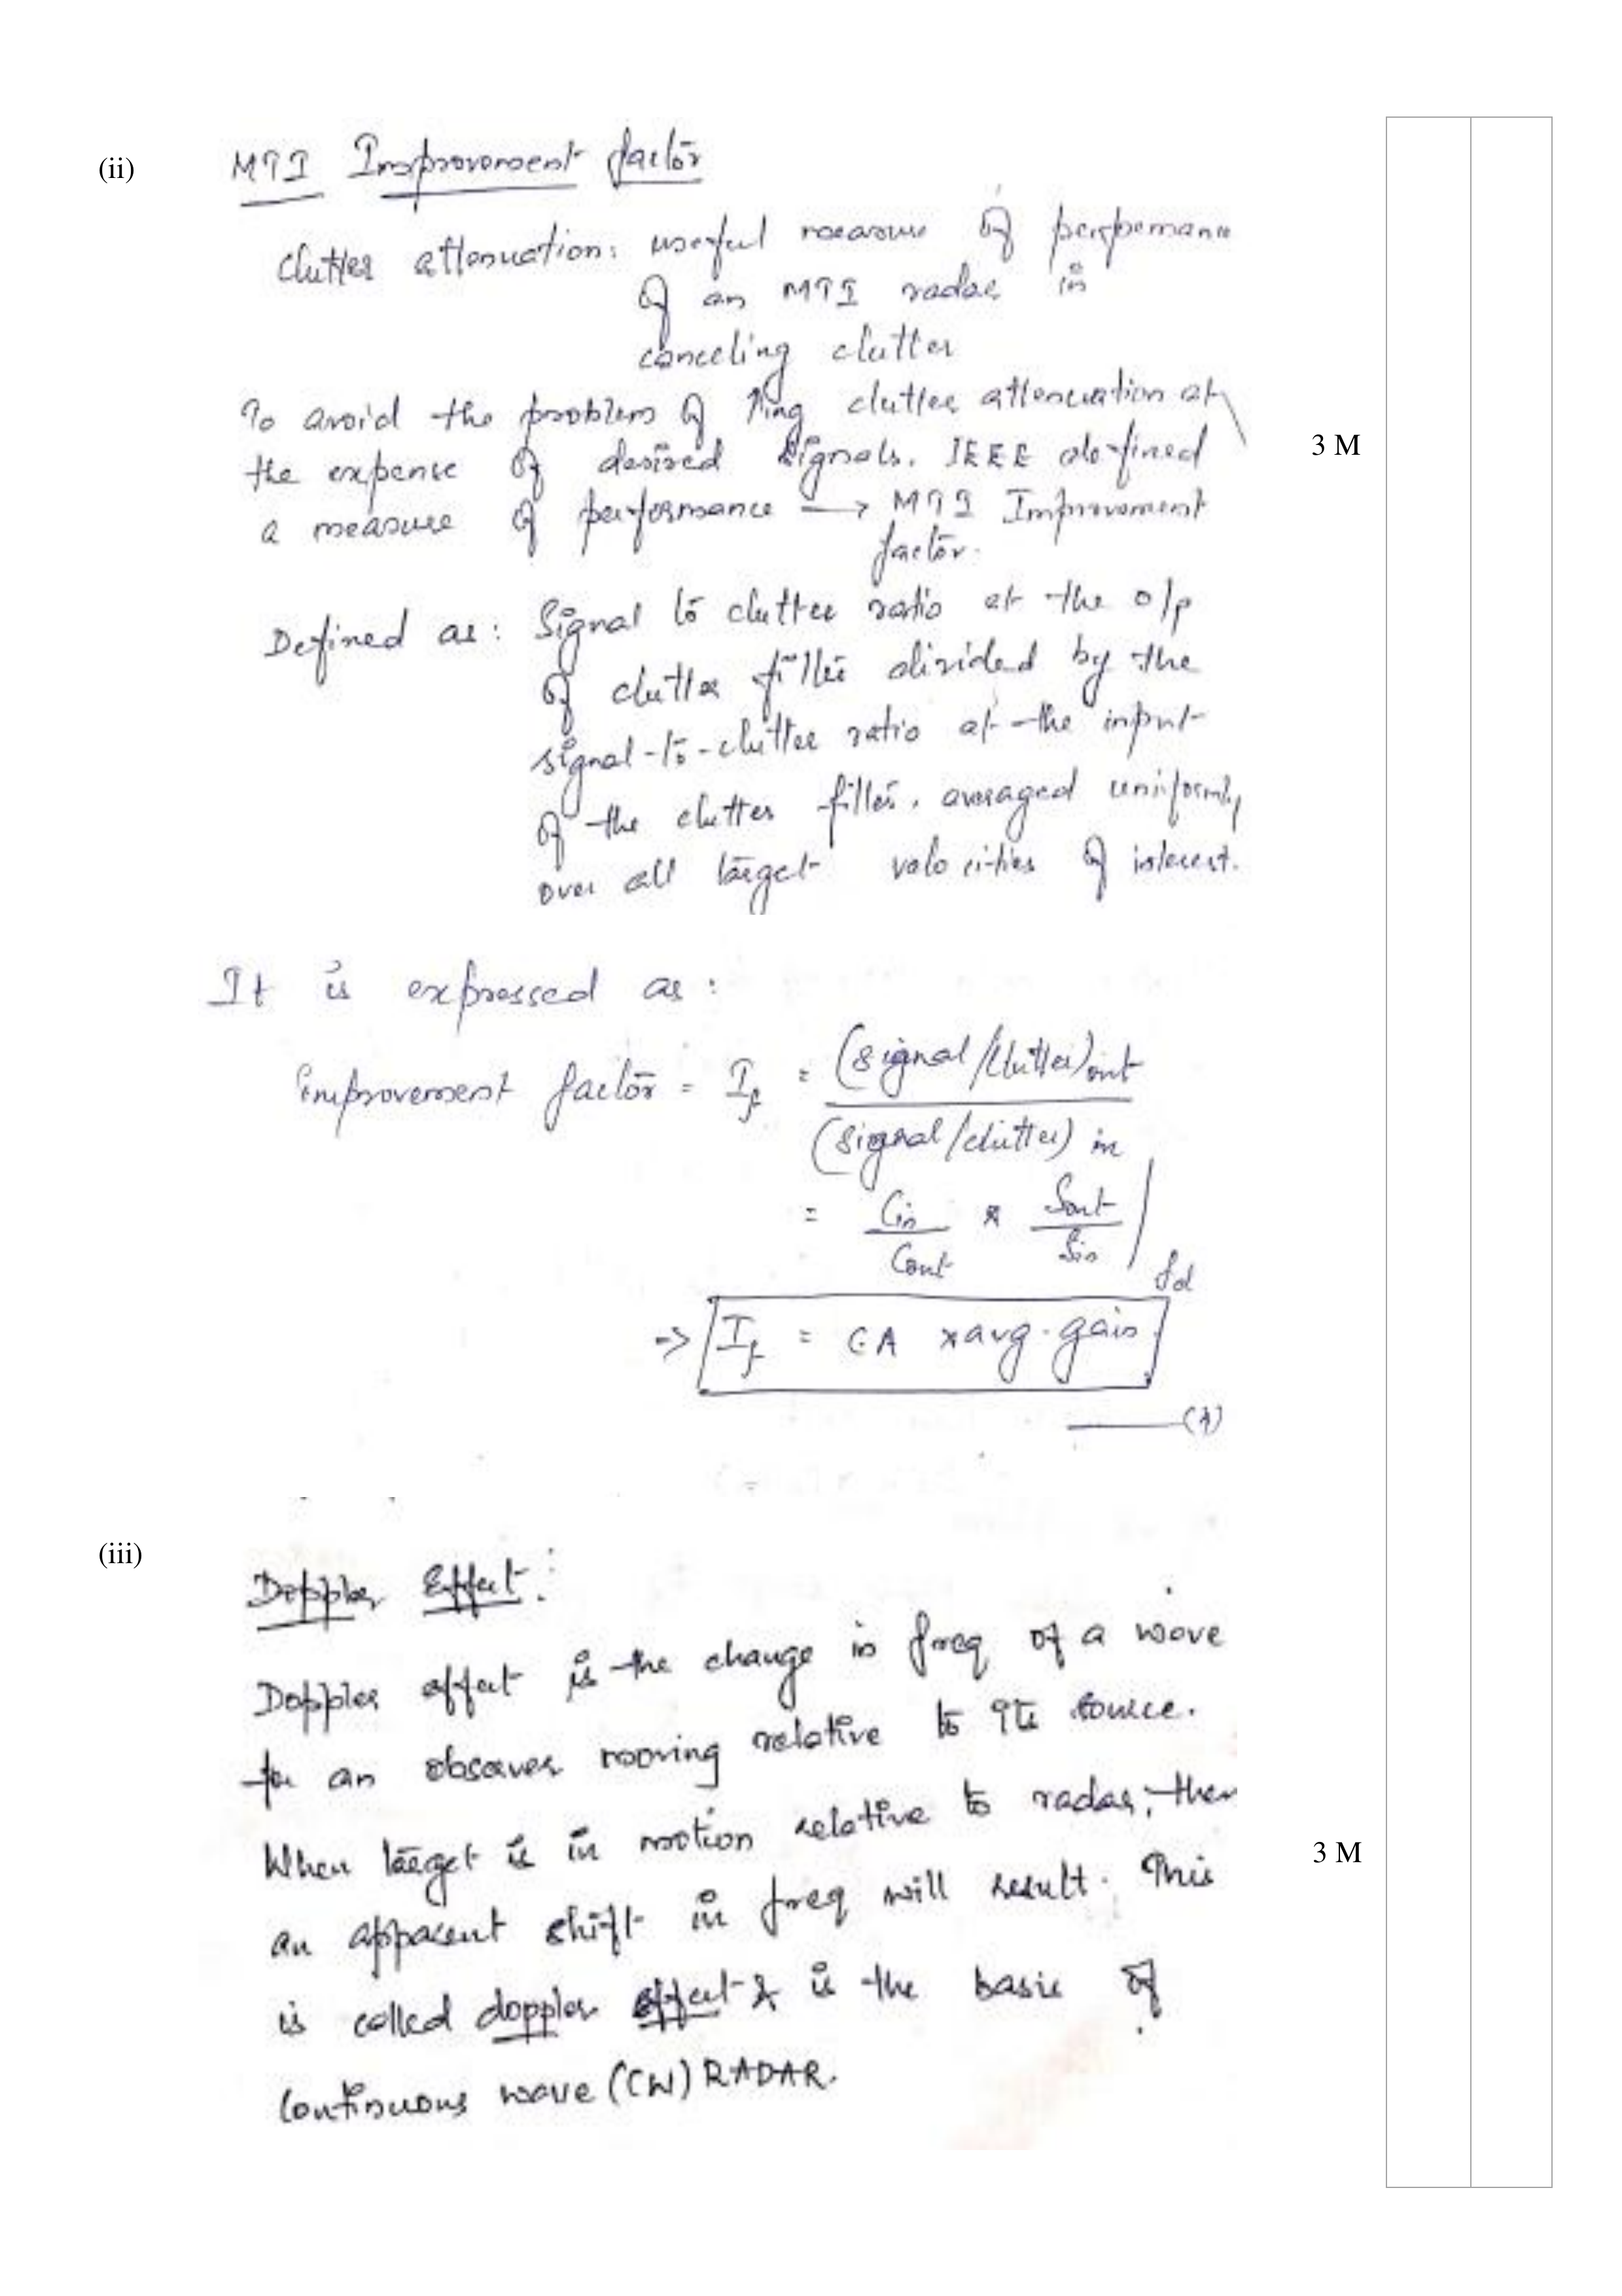 (ii)
MTI Improvement factor
Clutter attenuation: useful measure of performance
of an MTI radar in
canceling clutter
To avoid the problem of ↑ing clutter attenuation at
the expense of desired signals. IEEE defined
a measure of performance → MTI Improvement
factor.
3 M
Defined as: Signal to clutter ratio at the o/p
of clutter filter divided by the
signal-to-clutter ratio at the input
of the clutter filter, averaged uniformly
over all target velocities of interest.
It is expressed as:
improvement factor = If = (signal/clutter)out
(signal/clutter) in
= Cin/Cout * Sout/Sin | fd
=> If = CA x avg. gain
(iii)
Doppler Effect:
Doppler effect is the change in freq of a wave
for an observer moving relative to its source.
When target is in motion relative to radar, then
an apparent shift in freq will result. This
is called doppler effect & is the basic of
continuous wave (CW) RADAR.
3 M